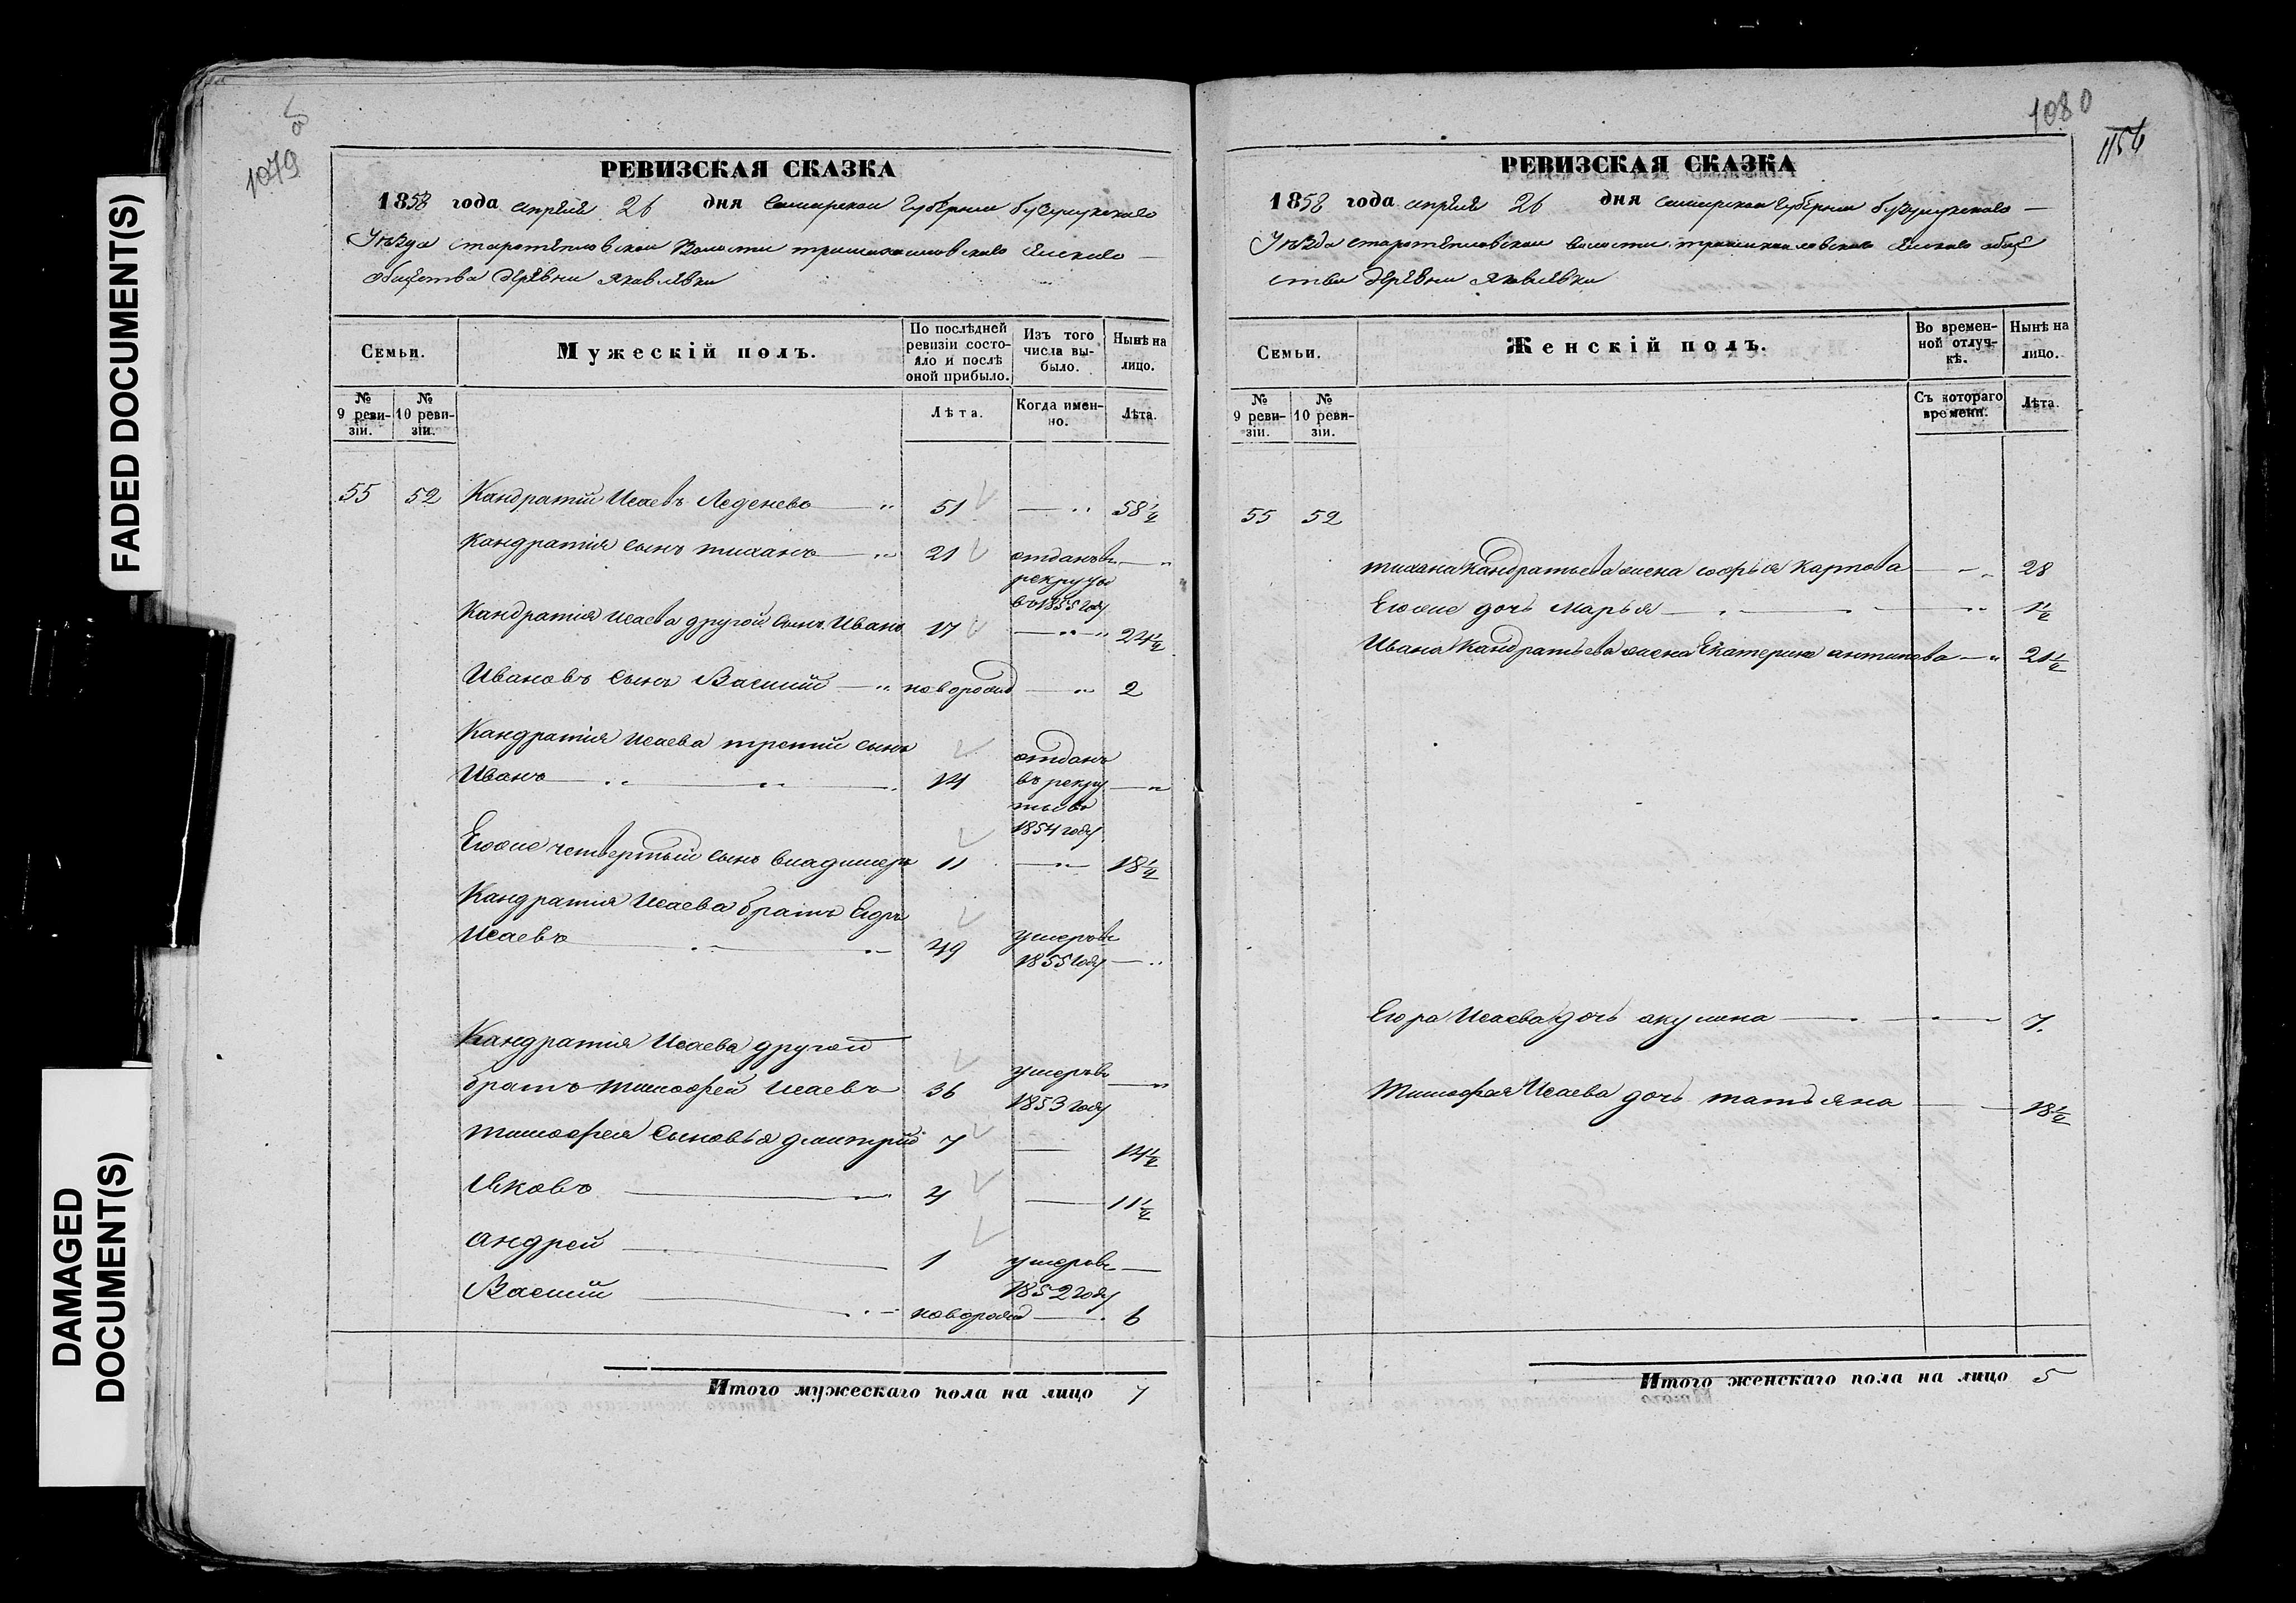 FADED DOCUMENT(S)
DAMAGED
DOCUMENT(S)
1079
РЕВИЗСКАЯ СКАЗКА
1858 года апреля 26 дня Самарской Губернии бузулукскаго
Уезда старотепловской Волости
общества деревни яковлевки
Семьи.
Мужескій полъ.
По послѣдней
ревизіи состо-
яло и послѣ
оной прибыло.
Изъ того
числа вы-
было.
Нынѣ на
лицо.
№
9 реви-
зіи.
№
10 реви-
зіи.
Лѣта.
Когда имен-
но.
Лѣта.
55 52 Кандратий Исаевъ Леденевъ 51 58 1/2
Кандратия сынъ тиханъ 21 отданъ в
рекруты
въ 1855 году
Кандратия Исаева другой сынъ Иванъ 17 24 1/2
Ивановъ сынъ Василий новорожд 2
Кандратия Исаева третий сынъ
Иванъ 14
отданъ
въ рекру
ты въ
1854 году
Егоже четвертый сынъ владимеръ 11 18 1/2
Кандратия Исаева братъ Егоръ
Исаевъ 49 умеръ в
1855 году
Кандратия Исаева другой
братъ тимофей Исаевъ 36 умеръ в
1853 году
тимофея сыновья дмитрий 7 14 1/2
Яковъ 4 11 1/2
андрей 1 умеръ в
1852 году
Василий новорожд 6
Итого мужескаго пола на лицо 7
1080
1156
РЕВИЗСКАЯ СКАЗКА
1858 года апреля 26 дня самарской Губернии бузулукскаго
Уезда старотепловской волости обще
ства деревни яковлевки
Семьи.
Женскій полъ.
Во времен-
ной отлуч-
кѣ.
Нынѣ на
лицо.
№
9 реви-
зіи.
№
10 реви-
зіи.
Съ котораго
времени.
Лѣта.
55 52
тихана Кандратьева жена софья Карпова 28
Егоже дочь марья 1 1/2
Ивана Кандратьева жена Екатерина антипова 21 1/2
Егора Исаева дочь акулина 7
Тимофея Исаева дочь татьяна 18 1/2
Итого женскаго пола на лицо 5